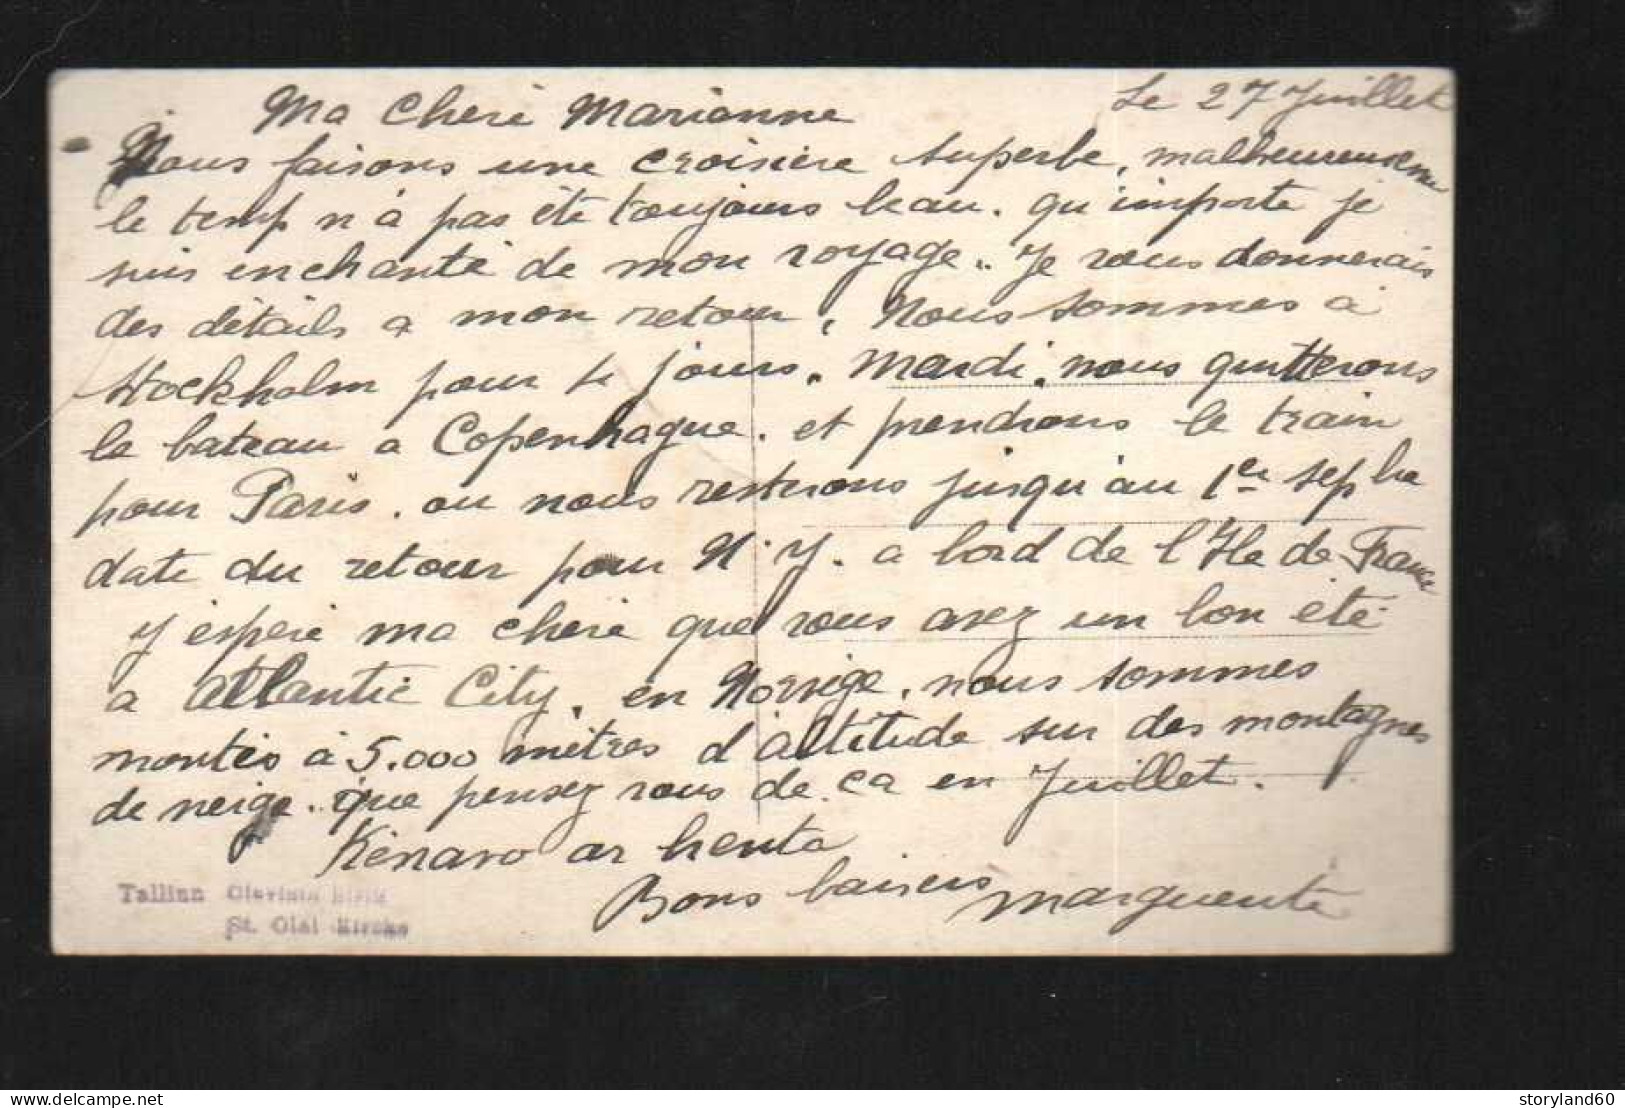 Le 27 Juillet
Ma Cheré Marianne
Nous faisons une croisière superbe, malheureuseme
le temp n'à pas étè toujours beau. qu'importe je
suis enchanté de mon voyage.. Je vous donnerais
des détails a mon retour, Nous sommes à
Stockholm pour jours, Mardi, nous quitterons
le bateau a Copenhague. et prendrons le train
pour Paris. ou nous resterons jusqu'au 1er sepbre
date du retour pour N. Y. a bord de l'Ile de France
J'esperé ma cheré que vous avez un bon été
a Atlantic City. en Norvège, nous sommes
montés à 5.000 mètres d'altitude sur des montagnes
de neige.. que pensez vous de ça en Juillet.
Kénavo ar henta
Bons baisers Marguerite
Tallinn Oleviste Kirik
St. Olai Kirche
delcampe.net
storyland60